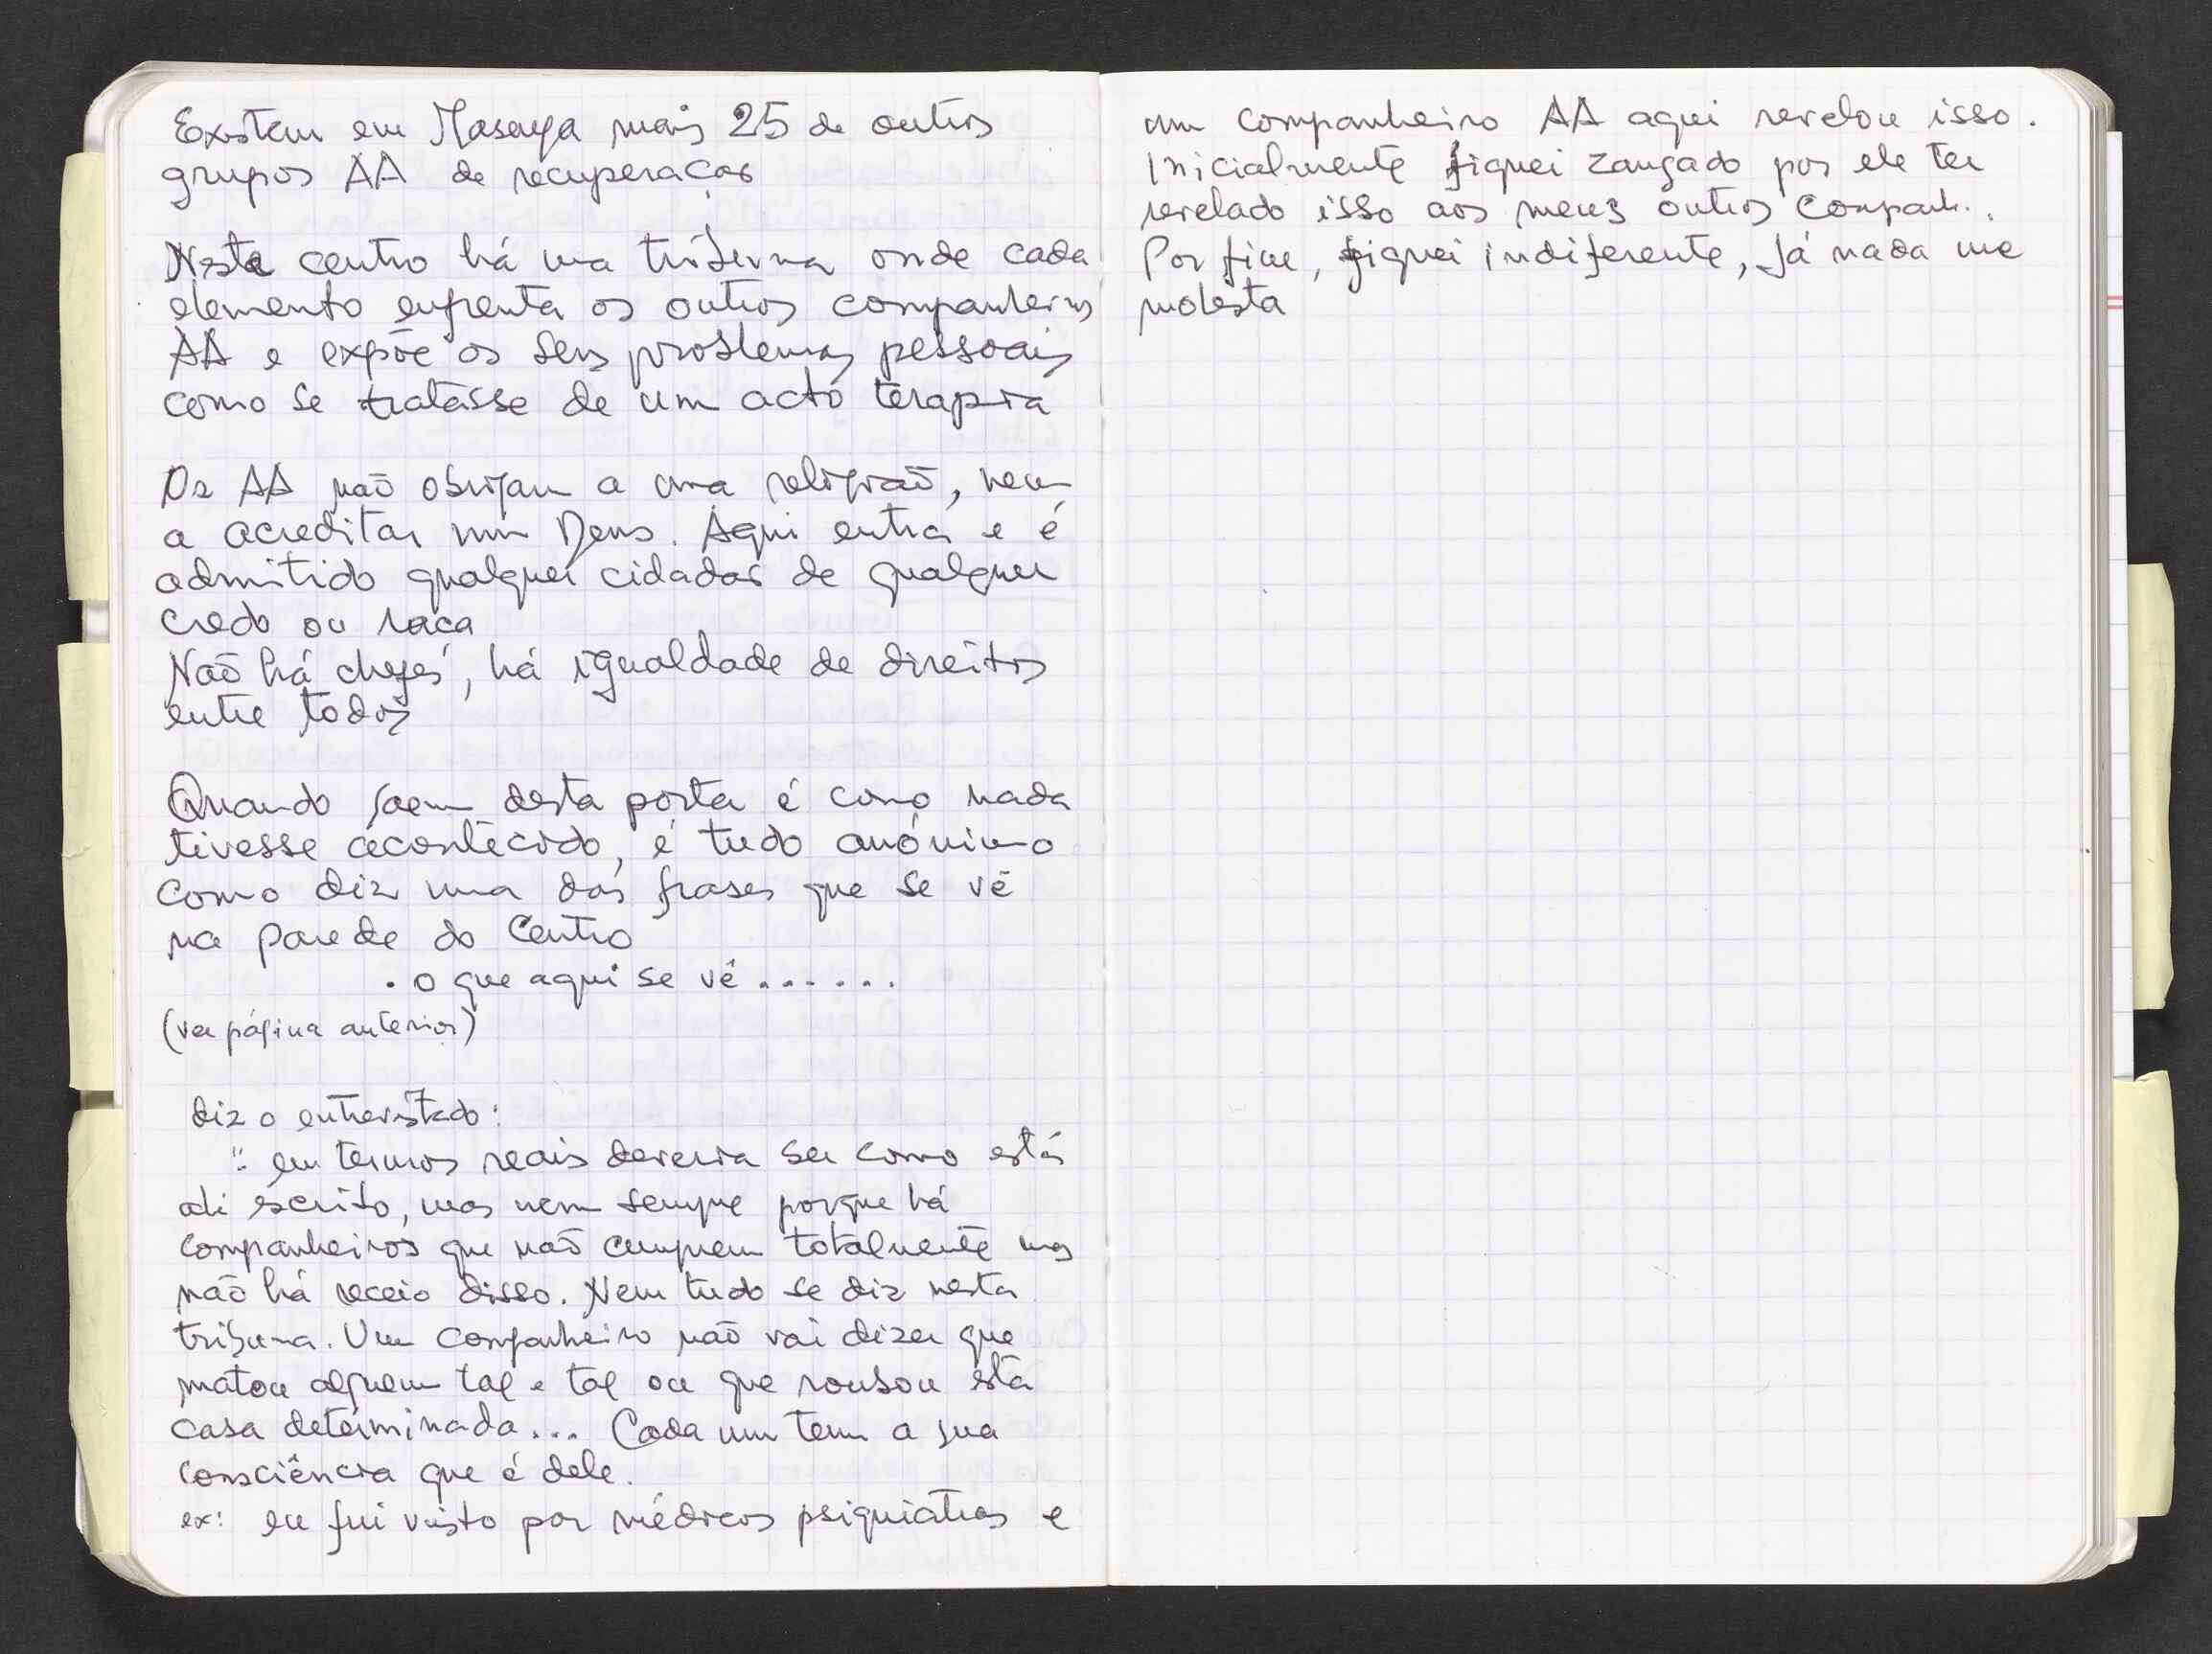 Existem em Masaya mais 25 de outros
grupos AA de recuperação
Neste centro há uma tribuna onde cada
elemento enfrenta os outros companheiros
AA e expõe os seus problemas pessoais
como se tratasse de um acto terapia
Os AA não obrigam a uma religião, nem
a acreditar num Deus. Aqui entra e é
admitido qualquer cidadão de qualquer
credo ou raca
Não há chefes, há igualdade de direitos
entre todos
Quando saem desta porta é como nada
tivesse acontecido, é tudo anónimo
como diz uma das frases que se vê
na parede do Centro
. o que aqui se vê . . . . . .
(ver página anterior)
diz o entrevistado:
": em termos reais deveria ser como está
ali escrito, mas nem sempre porque há
companheiros que não cumprem totalmente mas
não há receio disso. Nem tudo se diz nesta
tribuna. Um companheiro não vai dizer que
matou alguem tal e tal ou que roubou esta
casa determinada... Cada um tem a sua
consciência que é dele.
ex: eu fui visto por médicos psiquiatras e
um companheiro AA aqui revelou isso.
Inicialmente fiquei zangado por ele ter
revelado isso aos meus outros companh..
Por fim, fiquei indiferente, Já nada me
molesta